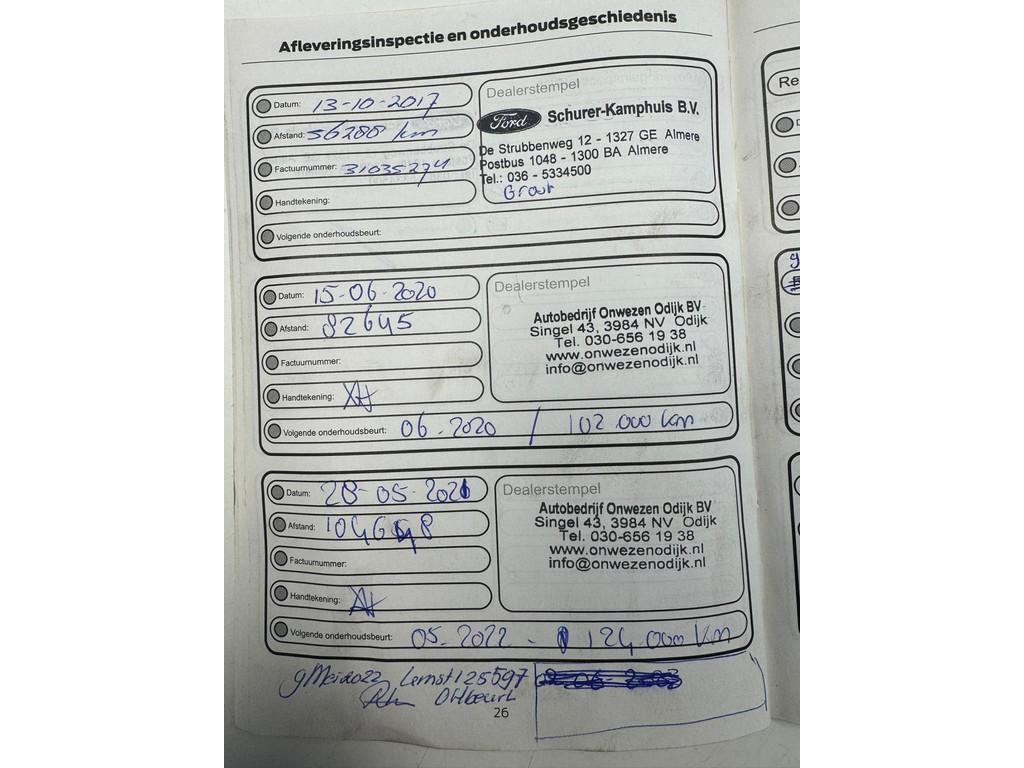 Afleveringsinspectie en onderhoudsgeschiedenis
Datum: 13-10-2017
Afstand: 56288 km
Factuurnummer:
Handtekening:
Volgende onderhoudsbeurt:
Dealerstempel
Ford Schurer-Kamphuis B.V.
De Strubbenweg 12 - 1327 GE Almere
Postbus 1048 - 1300 BA Almere
Tel.: 036 - 5334500
Datum: 15-06-2020
Afstand: 82645
Factuurnummer:
Handtekening:
Volgende onderhoudsbeurt: 06.2020 / 102.000 km
Dealerstempel
Autobedrijf Onwezen Odijk BV
Singel 43, 3984 NV Odijk
Tel. 030-656 19 38
www.onwezenodijk.nl
info@onwezenodijk.nl
Datum: 28-05-2021
Afstand:
Factuurnummer:
Handtekening:
Volgende onderhoudsbeurt: 05.2022 - 124.000 km
Dealerstempel
Autobedrijf Onwezen Odijk BV
Singel 43, 3984 NV Odijk
Tel. 030-656 19 38
www.onwezenodijk.nl
info@onwezenodijk.nl
9 Mei 2022 125597
26
Re